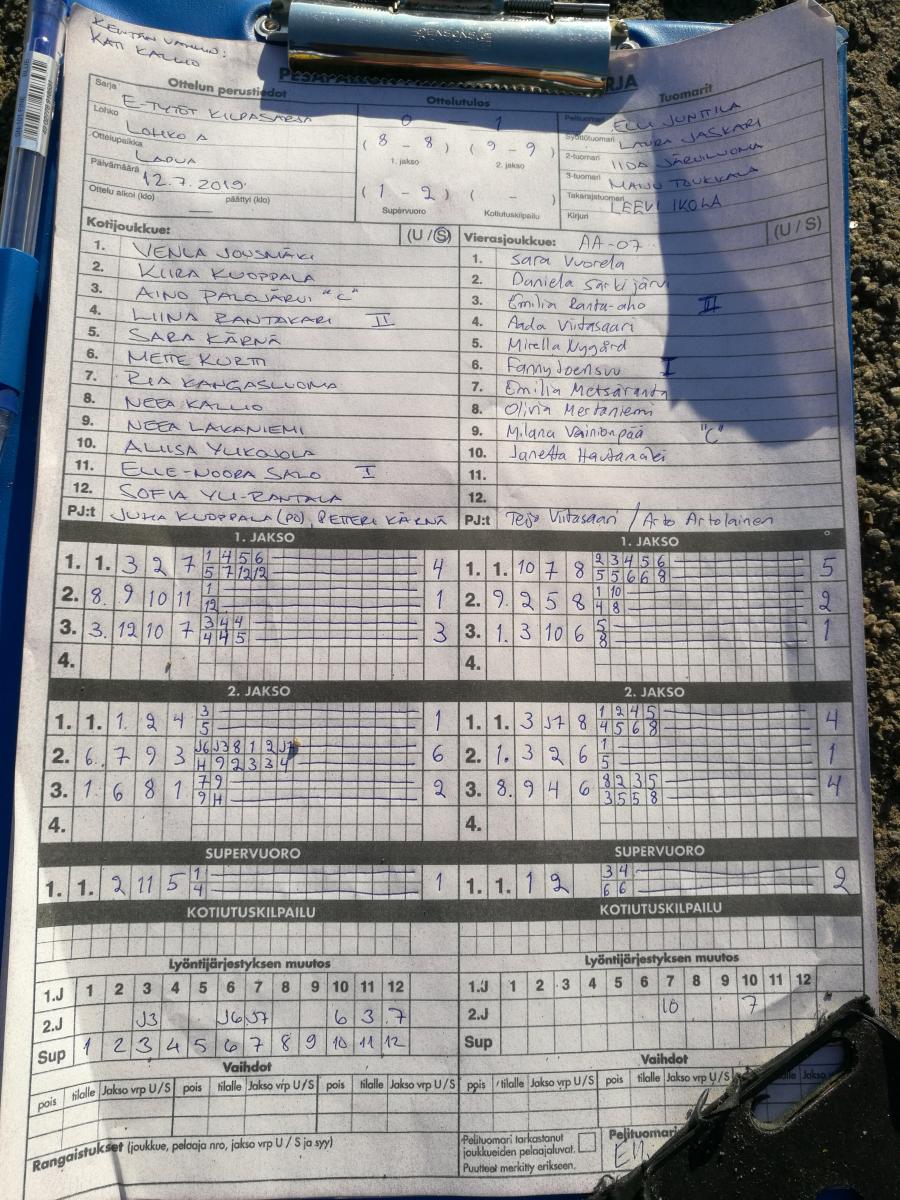 KENTÄN VANHIN:
KATI KALLIO
Ottelun perustiedot
Ottelutulos
Tuomarit
Sarja E-TYTÖT KILPASARJA
Lohko LOHKO A
Ottelupaikka LAPUA
Päivämäärä 12.7.2019
Ottelu alkoi (klo) — päättyi (klo)
0 — 1
(8 – 8) (9 – 9)
1. jakso 2. jakso
(1 – 2) ( – )
Supervuoro Kotiutuskilpailu
Pelituomari ELLI JUNTTILA
Syöttötuomari LAURA JASKARI
2-tuomari IIDA JÄRVILUOMA
3-tuomari MANU TOUKKALA
Takarajatuomari LEEVI IKOLA
Kirjuri
Kotijoukkue: (U / S)
1. VENLA JOUSMÄKI
2. KIIRA KUOPPALA
3. AINO PALOJÄRVI "C"
4. LIINA RANTAKARI II
5. SARA KÄRNÄ
6. METTE KURTTI
7. RIA KANGASLUOMA
8. NEEA KALLIO
9. NEEA LAKANIEMI
10. ALIISA YLIKOJOLA
11. ELLE-NOORA SALO I
12. SOFIA YLI-RANTALA
PJ:t JUHA KUOPPALA (PO), PETTERI KÄRNÄ
Vierasjoukkue: AA-07 (U / S)
1. Sara Vuorela
2. Daniela Särkijärvi
3. Emilia Ranta-aho II
4. Aada Viitasaari
5. Mirella Nygård
6. Fanny Joensuu I
7. Emilia Metsäranta
8. Olivia Mertaniemi
9. Milana Vainionpää "C"
10. Janetta Hautamäki
11.
12.
PJ:t Teijo Viitasaari / Arto Artolainen
1. JAKSO
1. 1. 3 2 7 1 4 5 6 4
5 7 12 12
2. 8. 9 10 11 1 1
12
3. 3. 12 10 7 3 4 4 3
4 4 5
4.
1. JAKSO
1. 1. 10 7 8 2 3 4 5 6 5
5 5 6 6 8
2. 9. 2 5 8 1 10 2
4 8
3. 1. 3 10 6 5 1
8
4.
2. JAKSO
1. 1. 1. 2 4 3 1
5
2. 6. 7 9 3 J6 J3 8 1 2 J7 6
H 9 2 3 3 4
3. 1. 6 8 1 7 9 2
9 H
4.
2. JAKSO
1. 1. 3 J7 8 1 2 4 5 4
4 5 6 8
2. 1. 3 2 6 1 1
5
3. 8. 9 4 6 8 2 3 5 4
3 5 5 8
4.
SUPERVUORO
1. 1. 2 11 5 1 1
4
SUPERVUORO
1. 1. 1 2 3 4 2
6 6
KOTIUTUSKILPAILU
KOTIUTUSKILPAILU
Lyöntijärjestyksen muutos
1.J 1 2 3 4 5 6 7 8 9 10 11 12
2.J J3 J6 J7 6 3 7
Sup 1 2 3 4 5 6 7 8 9 10 11 12
Lyöntijärjestyksen muutos
1.J 1 2 3 4 5 6 7 8 9 10 11 12
2.J 10 7
Sup
Vaihdot
pois tilalle Jakso vrp U / S pois tilalle Jakso vrp U / S pois tilalle Jakso vrp U / S
Vaihdot
pois tilalle Jakso vrp U / S pois tilalle Jakso vrp U / S
Rangaistukset (joukkue, pelaaja nro, jakso vrp U / S ja syy)
Pelituomari tarkastanut
joukkueiden pelaajaluvat.
Puutteet merkitty erikseen.
Pelituomari